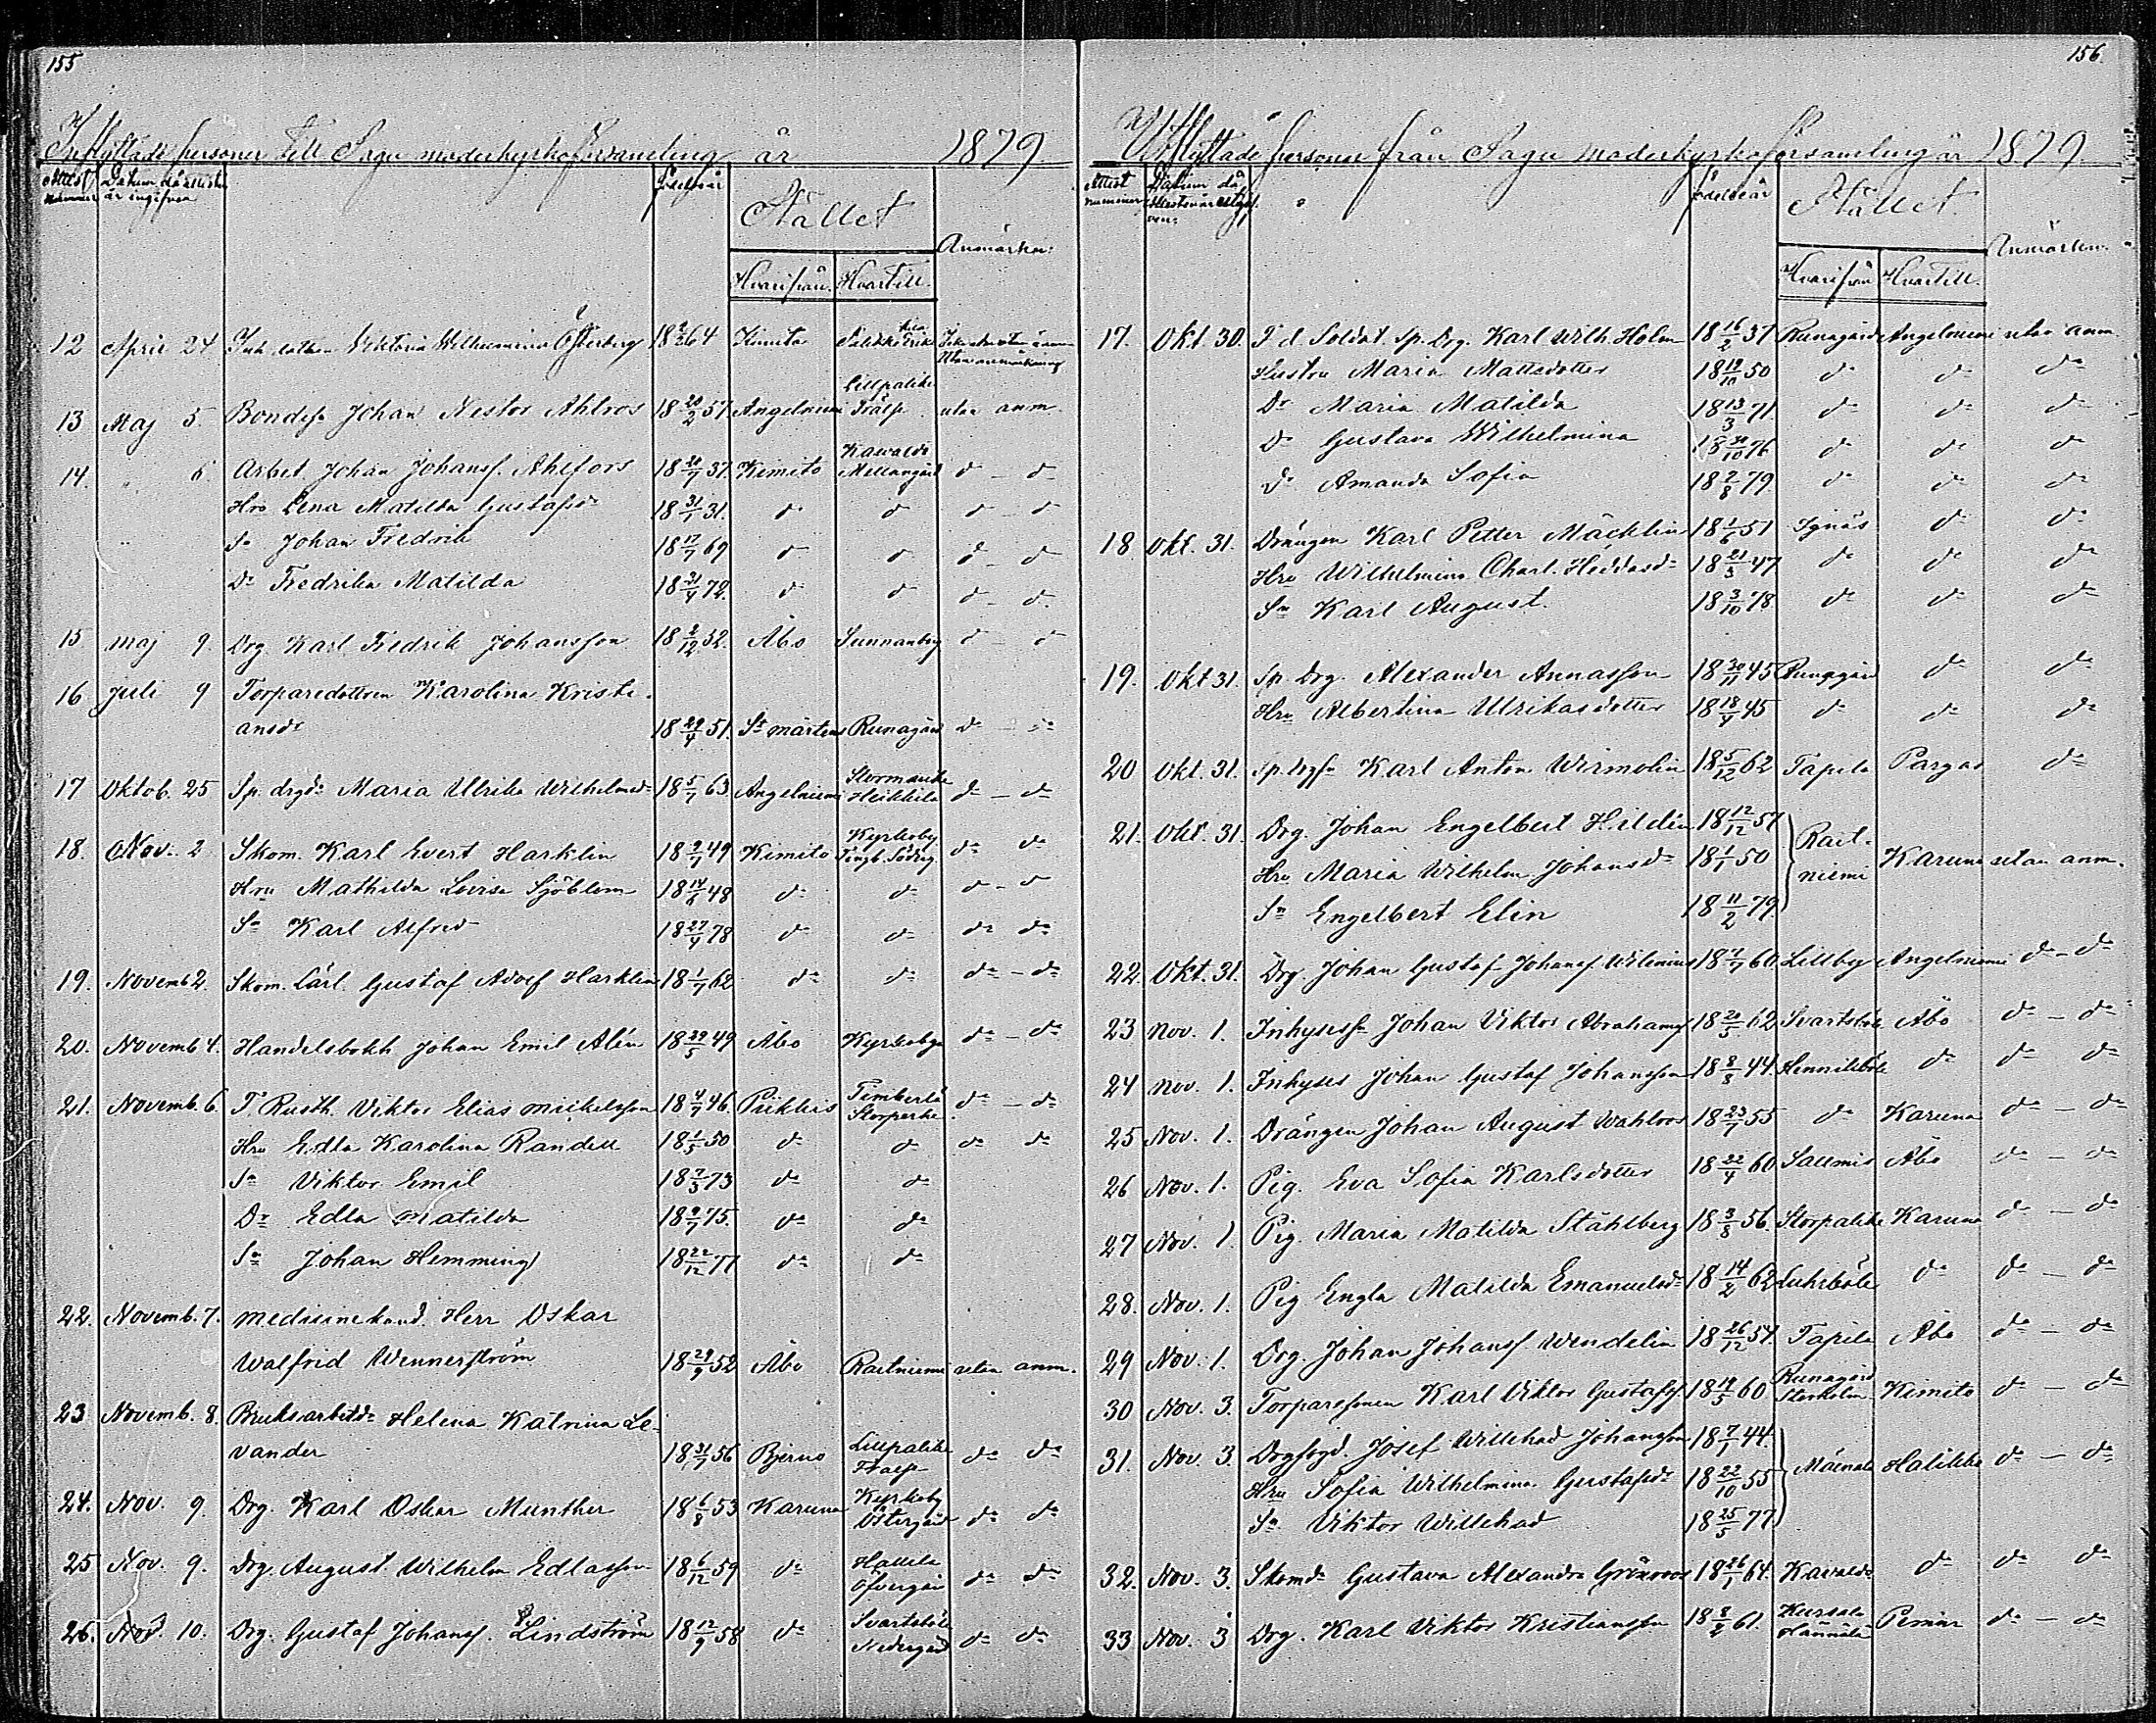 155
Inflyttade personer till Sagu moderkyrkoförsamling år 1879.
Attest nummer Datum då attesten är ingifven födelseår Stället Anmärkn:
Hvarifrån. Hvartill.
12 April 24 Viktoria Wilhelmina Österberg 18 64 Kimito
utan anmärkning
Lillpalike
13 Maj 5. Bondes. Johan Nestor Ahlros 18 20/2 57 Angelniemi Träsp utan anm.
Kawaldo
14. " 6. Arbet. Johan Johanss. Ahlfors 18 20/7 37. Kimito Mellangård d - d
Hru Lena Matilda Gustafsdr 18 31/1 31. d d d - d
Sn Johan Fredrik 18 17/7 69 d d d - d
Dr Fredrika Matilda 18 21/4 72. d d d - d.
15 Maj 9. Drg. Karl Fredrik Johansson 18 2/12 32. Åbo Sunnanberg d - d
16 Juli 9 Torparedottren Karolina Kristi-
ansdr 18 29/4 51. St Mårtens Runagård d - d
Stormanke
17 Oktob. 25 Sp. drgdr Maria Ulrika Wilhelmsdr 18 5/7 63 Angelniemi Heikkilä d - d
Kyrkoby
18. Nov. 2 Skom. Karl Evert Harklin 18 9/7 49 Kimito Tingb. Söderg. d d
Hru Mathilda Lovisa Sjöblom 18 14/6 48 d d d - d
Sn Karl Alfred 18 27/4 78 d d d d
19. Novemb 2. Skom. Lärl. Gustaf Adolf Harklin 18 1/7 62 d d d - d
20. Novemb 4. Handelsbokh. Johan Emil Alén 18 29/5 49 Åbo Kyrkoby d - d
Timberlä
21. Novemb. 6. T. Rusth. Viktor Elias Mickelsson 18 4/7 46. Piikkis Storperhe d - d
Hru Edla Karolina Randell 18 1/5 50 d d d d
Sn Viktor Emil 18 7/3 73 d d
Dr Edla Matilda 18 9/7 75. d d
Sn Johan Hemming 18 22/12 77 d d
22. Novemb. 7. Medicinekand. Herr Oskar
Walfrid Wennerström 18 29/9 52 Åbo Railniemi utan anm.
23 Novemb. 8. Bruksarbetdr Helena Katrina Le-
vander 18 31/7 56 Bjerno Lillpalike Träsp d d
24. Nov. 9. Drg. Karl Oskar Munther 18 6/8 53 Karuna Kyrkoby Östergård d d
25 Nov. 9. Drg. August Wilhelm Edlasson 18 6/12 59 d Hallela Öfvergård d d
26. Nov. 10. Drg. Gustaf Johanss. Lindström 18 12/9 58 d Svartsböle Nedergård d d
156.
Utflyttade personer från Sagu moderkyrkoförsamling år 1879.
Attest nummer Datum då Attesten är utgifven: födelseår Stället Anmärkn.
Hvarifrån Hvartill.
17. Okt. 30. F. d. Soldat. Sp. Drg. Karl Wilh. Holm 18 16/2 37 Runagård Angelniemi utan anm.
Hustru Maria Mattsdotter 18 19/10 50 d d d
Dr Maria Matilda 18 13/3 71 d d d
Dr Gustava Wilhelmina 18 30/10 76 d d d
Dr Amanda Sofia 18 2/8 79 d d d
18 Okt. 31. Drängen Karl Petter Mäcklin 18 1/6 51 Tynäs d d
Hru Wilhelmina Charl. Heddasdr 18 21/3 47 d d d
Sn Karl August. 18 3/10 78 d d d
19. Okt 31. Sp. Drg. Alexander Annasson 18 30/11 45 Runagård d d
Hru Albertina Ulrikasdotter 18 18/4 45 d d d
20 Okt. 31. Sp. drgsn Karl Anton Wirmolin 18 5/12 62 Tapila Pargas d
21. Okt. 31 Drg. Johan Engelbert Hildén 18 12/12 57 Rail-
Hru Maria Wilhelm. Johansdr 18 1/1 50 niemi Karuna utan anm.
Sn Engelbert Elin 18 11/2 79
22. Okt. 31. Drg. Johan Gustaf Johanss. Wilenius 18 7/7 60 Lillby Angelniemi d - d
23 Nov. 1. Inhysessn Johan Viktor Abrahamss 18 20/5 62 Svartsböle Åbo d - d
24 Nov. 1. Inhyses Johan Gustaf Johansson 18 8/8 44 Hennileböle d d d
25 Nov. 1. Drängen Johan August Wahlroos 18 23/7 55 d Karuna d - d
26 Nov. 1. Pig. Eva Sofia Karlsdotter 18 22/4 60 Salmis Åbo d - d
27 Nov. 1. Pig. Maria Matilda Ståhlberg 18 3/8 56. Storpalike Karuna d - d
28. Nov. 1. Pig Engla Matilda Emanuelsdr 18 14/2 62 Luhiböle d d - d
29 Nov. 1. Drg. Johan Johanss. Wendelin 18 26/12 54. Tapila Åbo d - d
30 Nov. 3. Torparesonen Karl Viktor Gustafss 18 19/5 60 Runagård Storholm Kimito d - d
31. Nov. 3. Drgfogd. Josef Willehad Johansson 18 7/1 44. Mäenala Halikko d - d
Hru Sofia Wilhelmina Gustafsdr 18 22/10 55
Sn Viktor Willehad 18 25/5 77
32. Nov. 3. Skomdr Gustava Alexandra Grönroos 18 26/1 64. Kavaldo d d d
33 Nov. 3 Drg. Karl Viktor Kristiansson 18 8/2 61. Kursala Hannula Pemar d - d